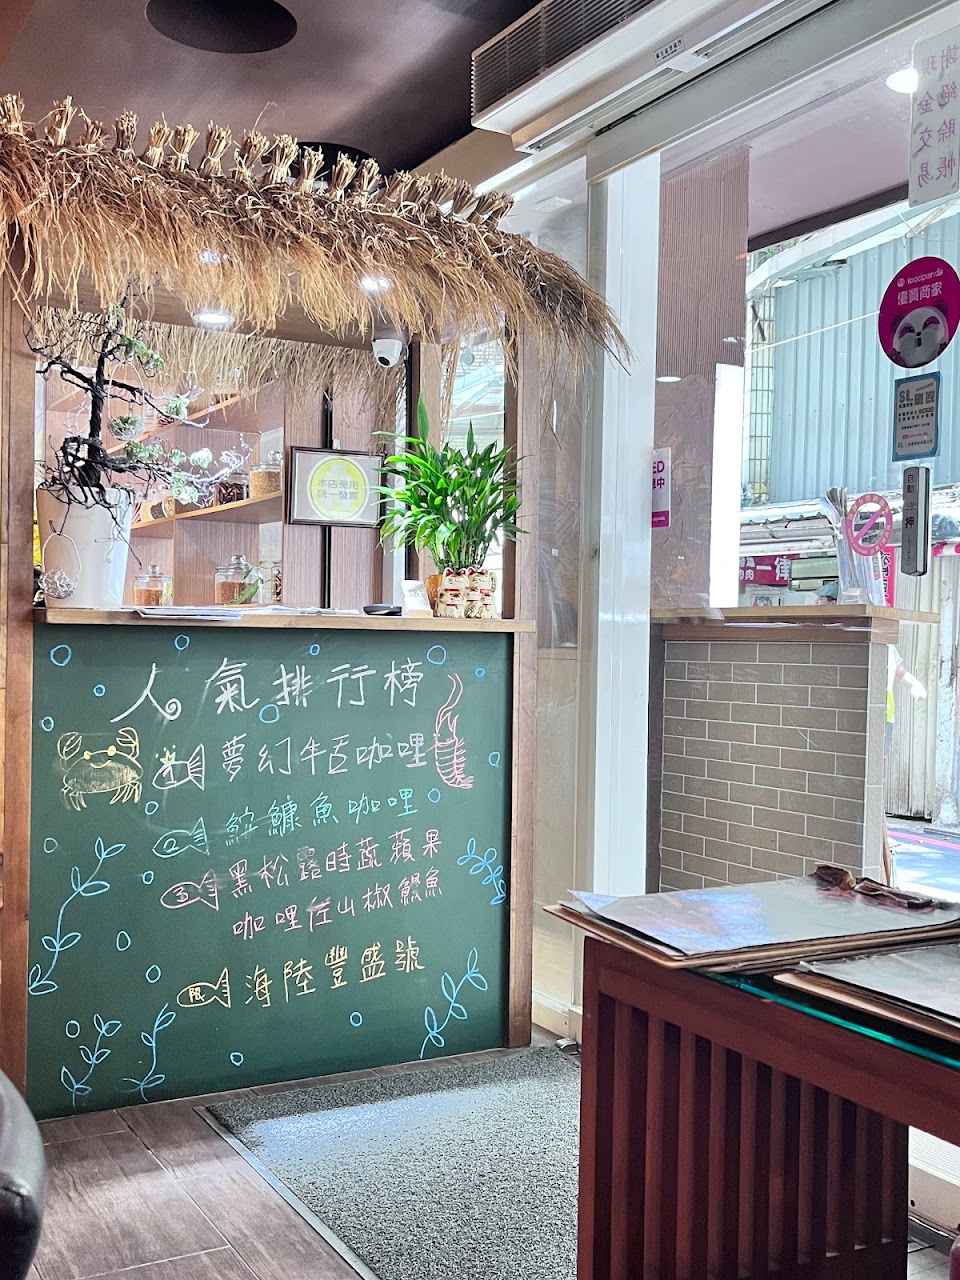 人氣排行榜
1 夢幻牛舌咖哩
2 鮟鱇魚咖哩
3 黑松露時蔬蘋果
咖哩佐山椒鰻魚
限 海陸豐盛號
本店免用
統一發票
謝絕賒帳
現金交易
foodpanda
優質商家
自動
押